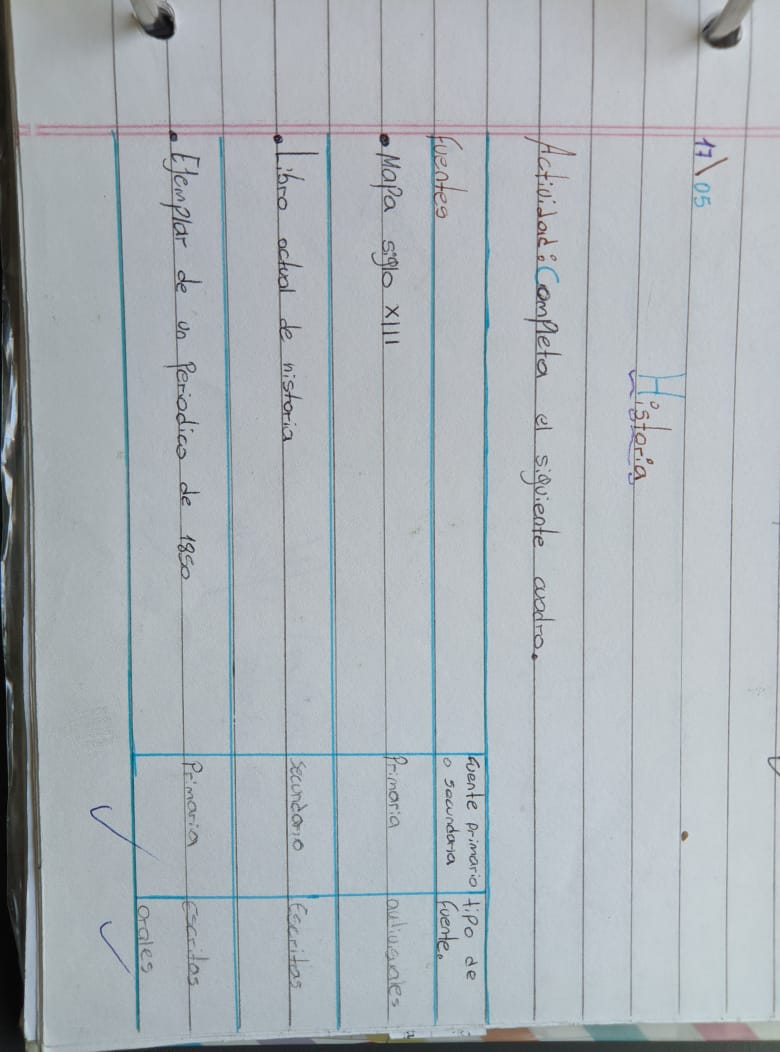 17\05
Historia
Actividad: Completa el siguiente cuadro.
Fuentes
fuente primario o secundaria
tipo de fuente.
• Mapa siglo XIII
Primaria
autivisuales
• Libro actual de historia
secundario
Escritas
• Ejemplar de un Periodico de 1850
Primaria
Escritas
orales